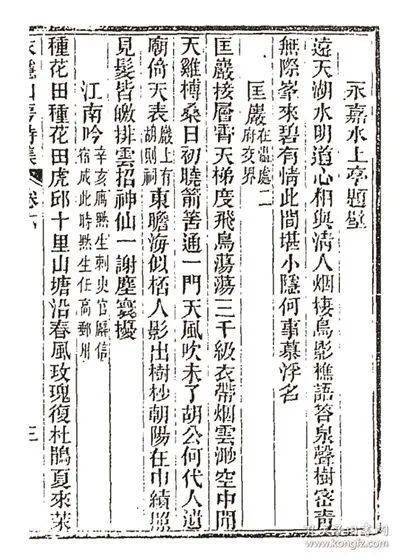 永嘉水上亭題壁
遠天湖水明道心相與清人烟棲鳥影樵語答泉聲樹密青
無際峯來碧有情此間堪小隱何事慕浮名
匡巖 在溫處二府交界
匡巖接層霄天梯度飛鳥蕩蕩三千級衣帶烟雲渺空中開
天雞搏桑日初曉箭筈通一門天風吹未了胡公何代人遺
廟倚天表 巖上有胡則祠 東瞻海似桮人影出樹杪朝陽在巾績照
見髮皆皦排雲招神仙一謝塵寰擾
江南吟 辛亥寓黙生刺史官廨信宿成此時黙生任高郵州
種花田種花田虎邱十里山塘沿春風玫瑰復杜鵑夏來茉
詩集 卷
三
www.kongfz.com